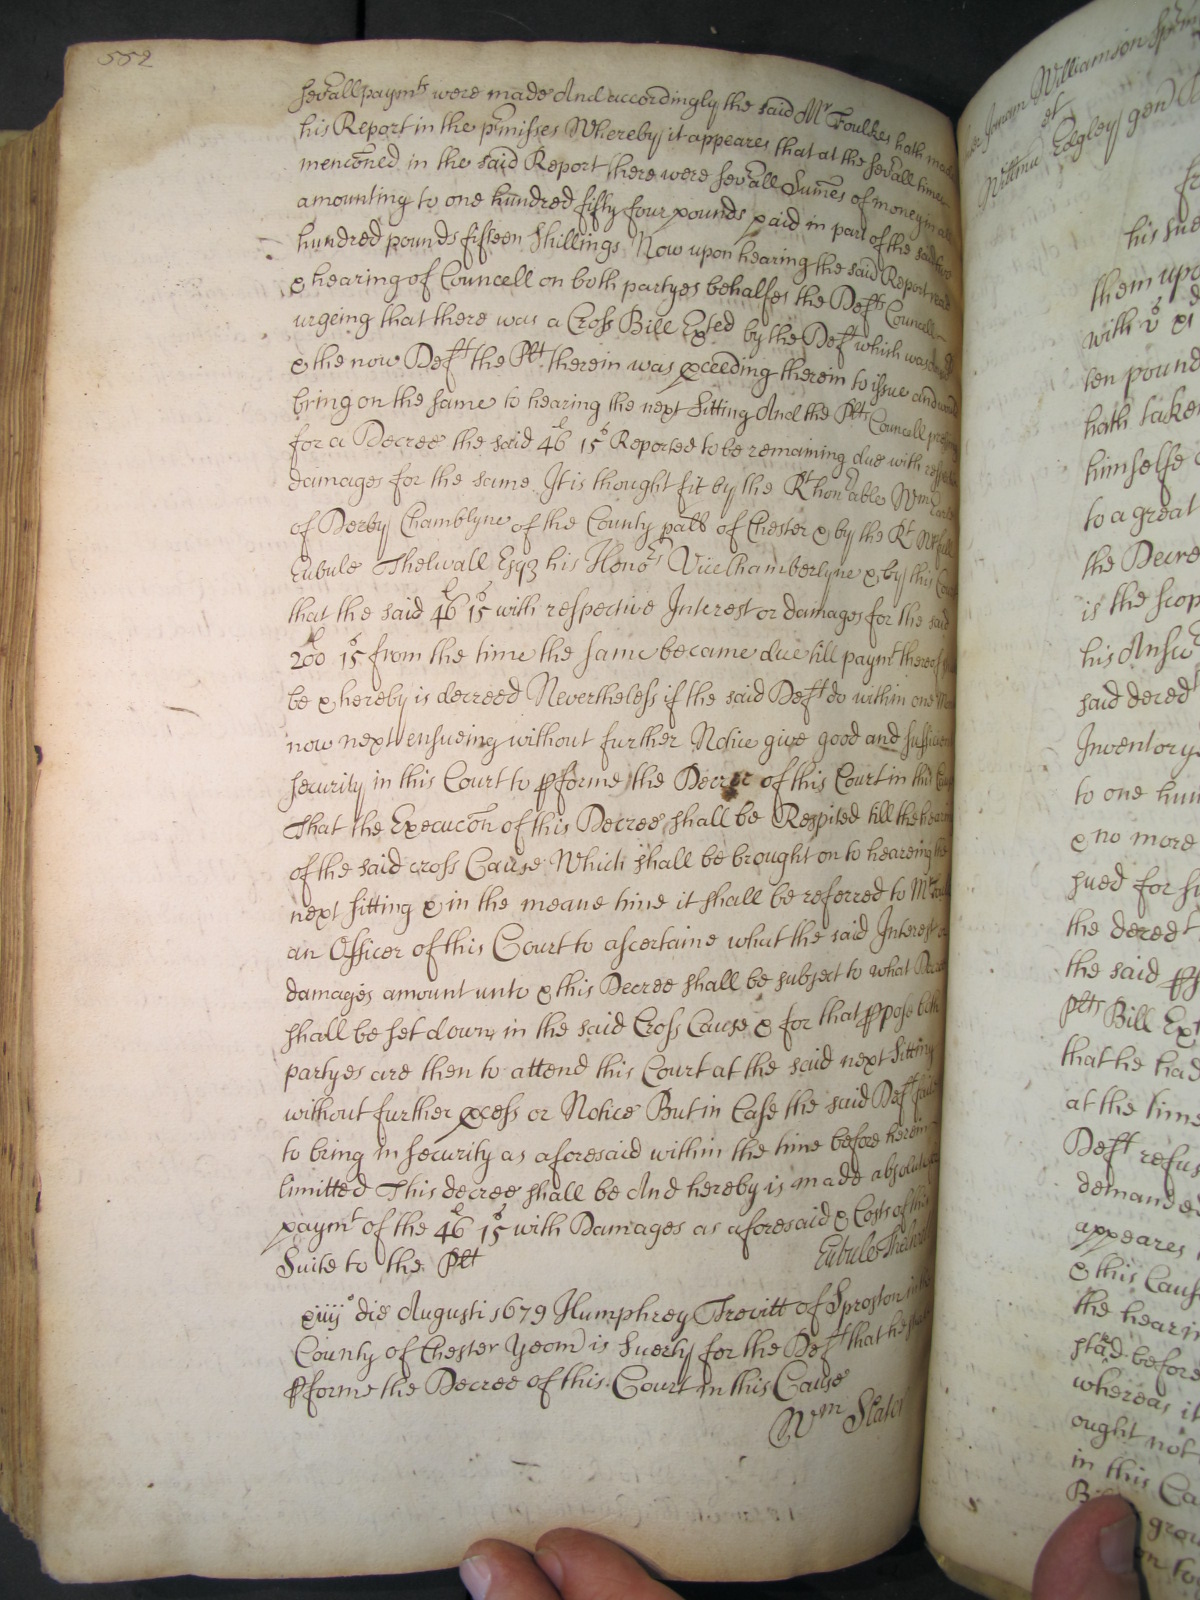 552
sev͠all paymts were made And accordingly the said Mr Foulkes hath made
his Report in the p͠misses Whereby it appeares that at the sev͠all times
menc͠oned in the said Report there were sev͠all Sum͠es of money in all
amounting to one hundred fifty four pounds paid in part of the said two
hundred pounds fifteen shillings Now upon hearing the said Report read
& hearing of Councell on both partyes behalfes the Defts Councell
urgeing that there was a Cross Bill Exted by the Deft which was
& the now Deft the Plt therein was p͠ceeding therein to issue and would
bring on the same to hearing the next Sitting And the Plts Councell
for a Decree the said 46l 15s Reported to be remaining due with
damages for the same It is thought fit by the Rt hon͠able Wm Earle
of Derby Chamblyne of the County pallt of Chester & by the Rt
Eubule Thelwall Esqz his Honors Vice Chamberlyne & by this Court
that the said 46l 15s with respective Interest or damages for the said
200l 15s from the time the same became due till paymt thereof
be & hereby is decreed Nevertheless if the said Deft do within one
now next ensueing without further Notice give good and sufficient
security in this Court to p͠forme the Decree of this Court in this
That the Execuc͠on of this Decree shall be Respited till the heareing
of the said cross Cause Which shall be brought on to heareing the
next sitting & in the meane time it shall be referred to Mr
an Officer of this Court to ascertaine what the said Interest or
damages amount unto & this Decree shall be subject to what Decree
shall be set down in the said Cross Cause & for that p͠pose both
partyes are then to attend this Court at the said next Sitting
without further p͠cess or Notice But in Case the said Deft faile
to bring in security as aforesaid within the time before herein
limitted This decree shall be And hereby is made absolute for
paymt of the 46l 15s with Damages as aforesaid & Costs of this
Suite to the Plt
Eubule Thelwall
xiiijo die Augusti 1679 Humphrey Trevitt of Sproston in the
County of Chester Yeom͠ is Suerty for the Deft that he shall
p͠forme the Decree of this Court in this Cause
Wm Slater
Williamson
et
Edgley gen
his
them upo
with
ten pound
hath take
himselfe
to a great
the Decre
is the scop
his Answ
said
Inventory
to one hun
& no more
sued for
the
the said
plts Bill Ext
that he had
at the time
Deft refus
demanded
appeares
& this Cause
the hearin
before
whereas it
ought not
in this Ca